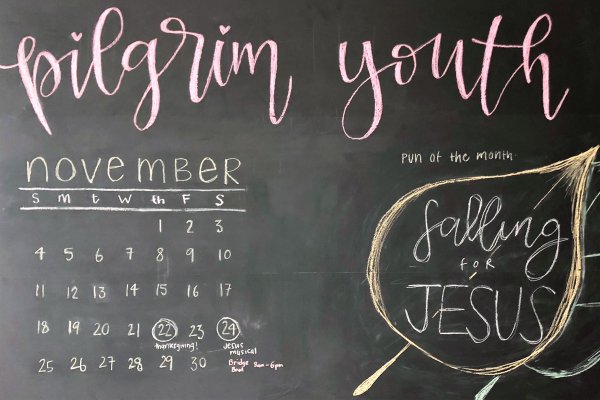 pilgrim youth
november
S M t W th F S
1 2 3
4 5 6 7 8 9 10
11 12 13 14 15 16 17
18 19 20 21 22 23 24
thanksgiving!
Jesus
musical
25 26 27 28 29 30
Bridge 9am-6pm
Pun of the month
falling
for
JESUS